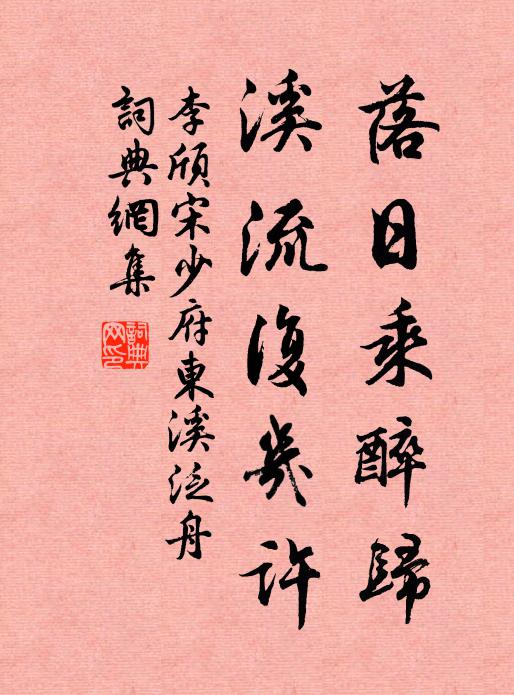 落日乘醉歸
溪流復幾許
李頎宋少府東溪泛舟
詞典網集
詞典網印